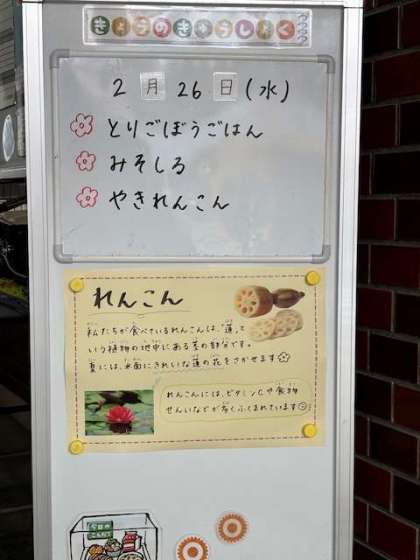 きょうのきゅうしょく
2月26日(水)
とりごぼうごはん
みそしる
やきれんこん
れんこん
私たちが食べているれんこんは、"蓮"と
いう植物の地中にある茎の部分です。
夏には、水面にきれいな蓮の花をさかせます
れんこんには、ビタミンCや食物
せんいなどが多くふくまれています
今日の
こんだて